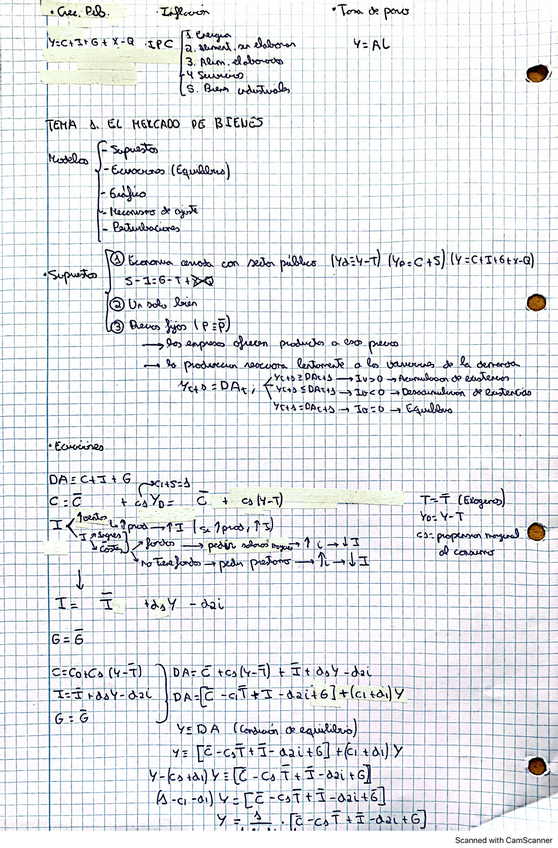 · Crec. Pob. · Inflación · Tasa de paro
Y=C+I+G+X-Q · IPC
1. Energía
2. Aliment. sin elaborar
3. Alim. elaborados
4. Servicios
5. Bienes industriales
Y = AL
TEMA 1. EL MERCADO DE BIENES
Modelos
- Supuestos
- Ecuaciones (Equilibrio)
- Gráfico
- Mecanismo de ajuste
- Perturbaciones
· Supuestos
① Economía cerrada con sector público (Yd=Y-T) (Yd=C+S) (Y=C+I+G+X-Q)
S-I=G-T+
② Un solo bien
③ Precios fijos (P=P̄)
→ las empresas ofrecen productos a esos precios
→ la producción reacciona lentamente a las variaciones de la demanda
Yt+1=DAt;
Yt+1≥DAt+1 → Iv>0 → Acumulación de existencias
Yt+1≤DAt+1 → Iv<0 → Desacumulación de existencias
Yt+1=DAt+1 → Iv=0 → Equilibrio
· Ecuaciones
DA=C+I+G
C1+S=1
C = C̄ + c1 YD = C̄ + c1(Y-T)
T=T̄ (Exógeno)
YD=Y-T
c1=propensión marginal al consumo
I
↑ventas ↳↑prod → ↑I (si ↑prod, ↑I)
Costes
fondos → pedir → ↑i → ↓I
No tiene fondos → pedir prestamo → ↑i → ↓I
↓
I = Ī +d1Y - d2i
G=Ḡ
C=C0+C1(Y-T̄)
I=Ī+d1Y-d2i
G=Ḡ
DA=C̄+c1(Y-T̄)+Ī+d1Y-d2i
DA=[C̄-c1T̄+Ī-d2i+G]+(c1+d1)Y
Y=DA (Condición de equilibrio)
Y=[C̄-c1T̄+Ī-d2i+G]+(c1+d1)Y
Y-(c1+d1)Y=[C̄-c1T̄+Ī-d2i+G]
(1-c1-d1)Y=[C̄-c1T̄+Ī-d2i+Ḡ]
Y= 1 · [C̄-c1T̄+Ī-d2i+G]
Scanned with CamScanner